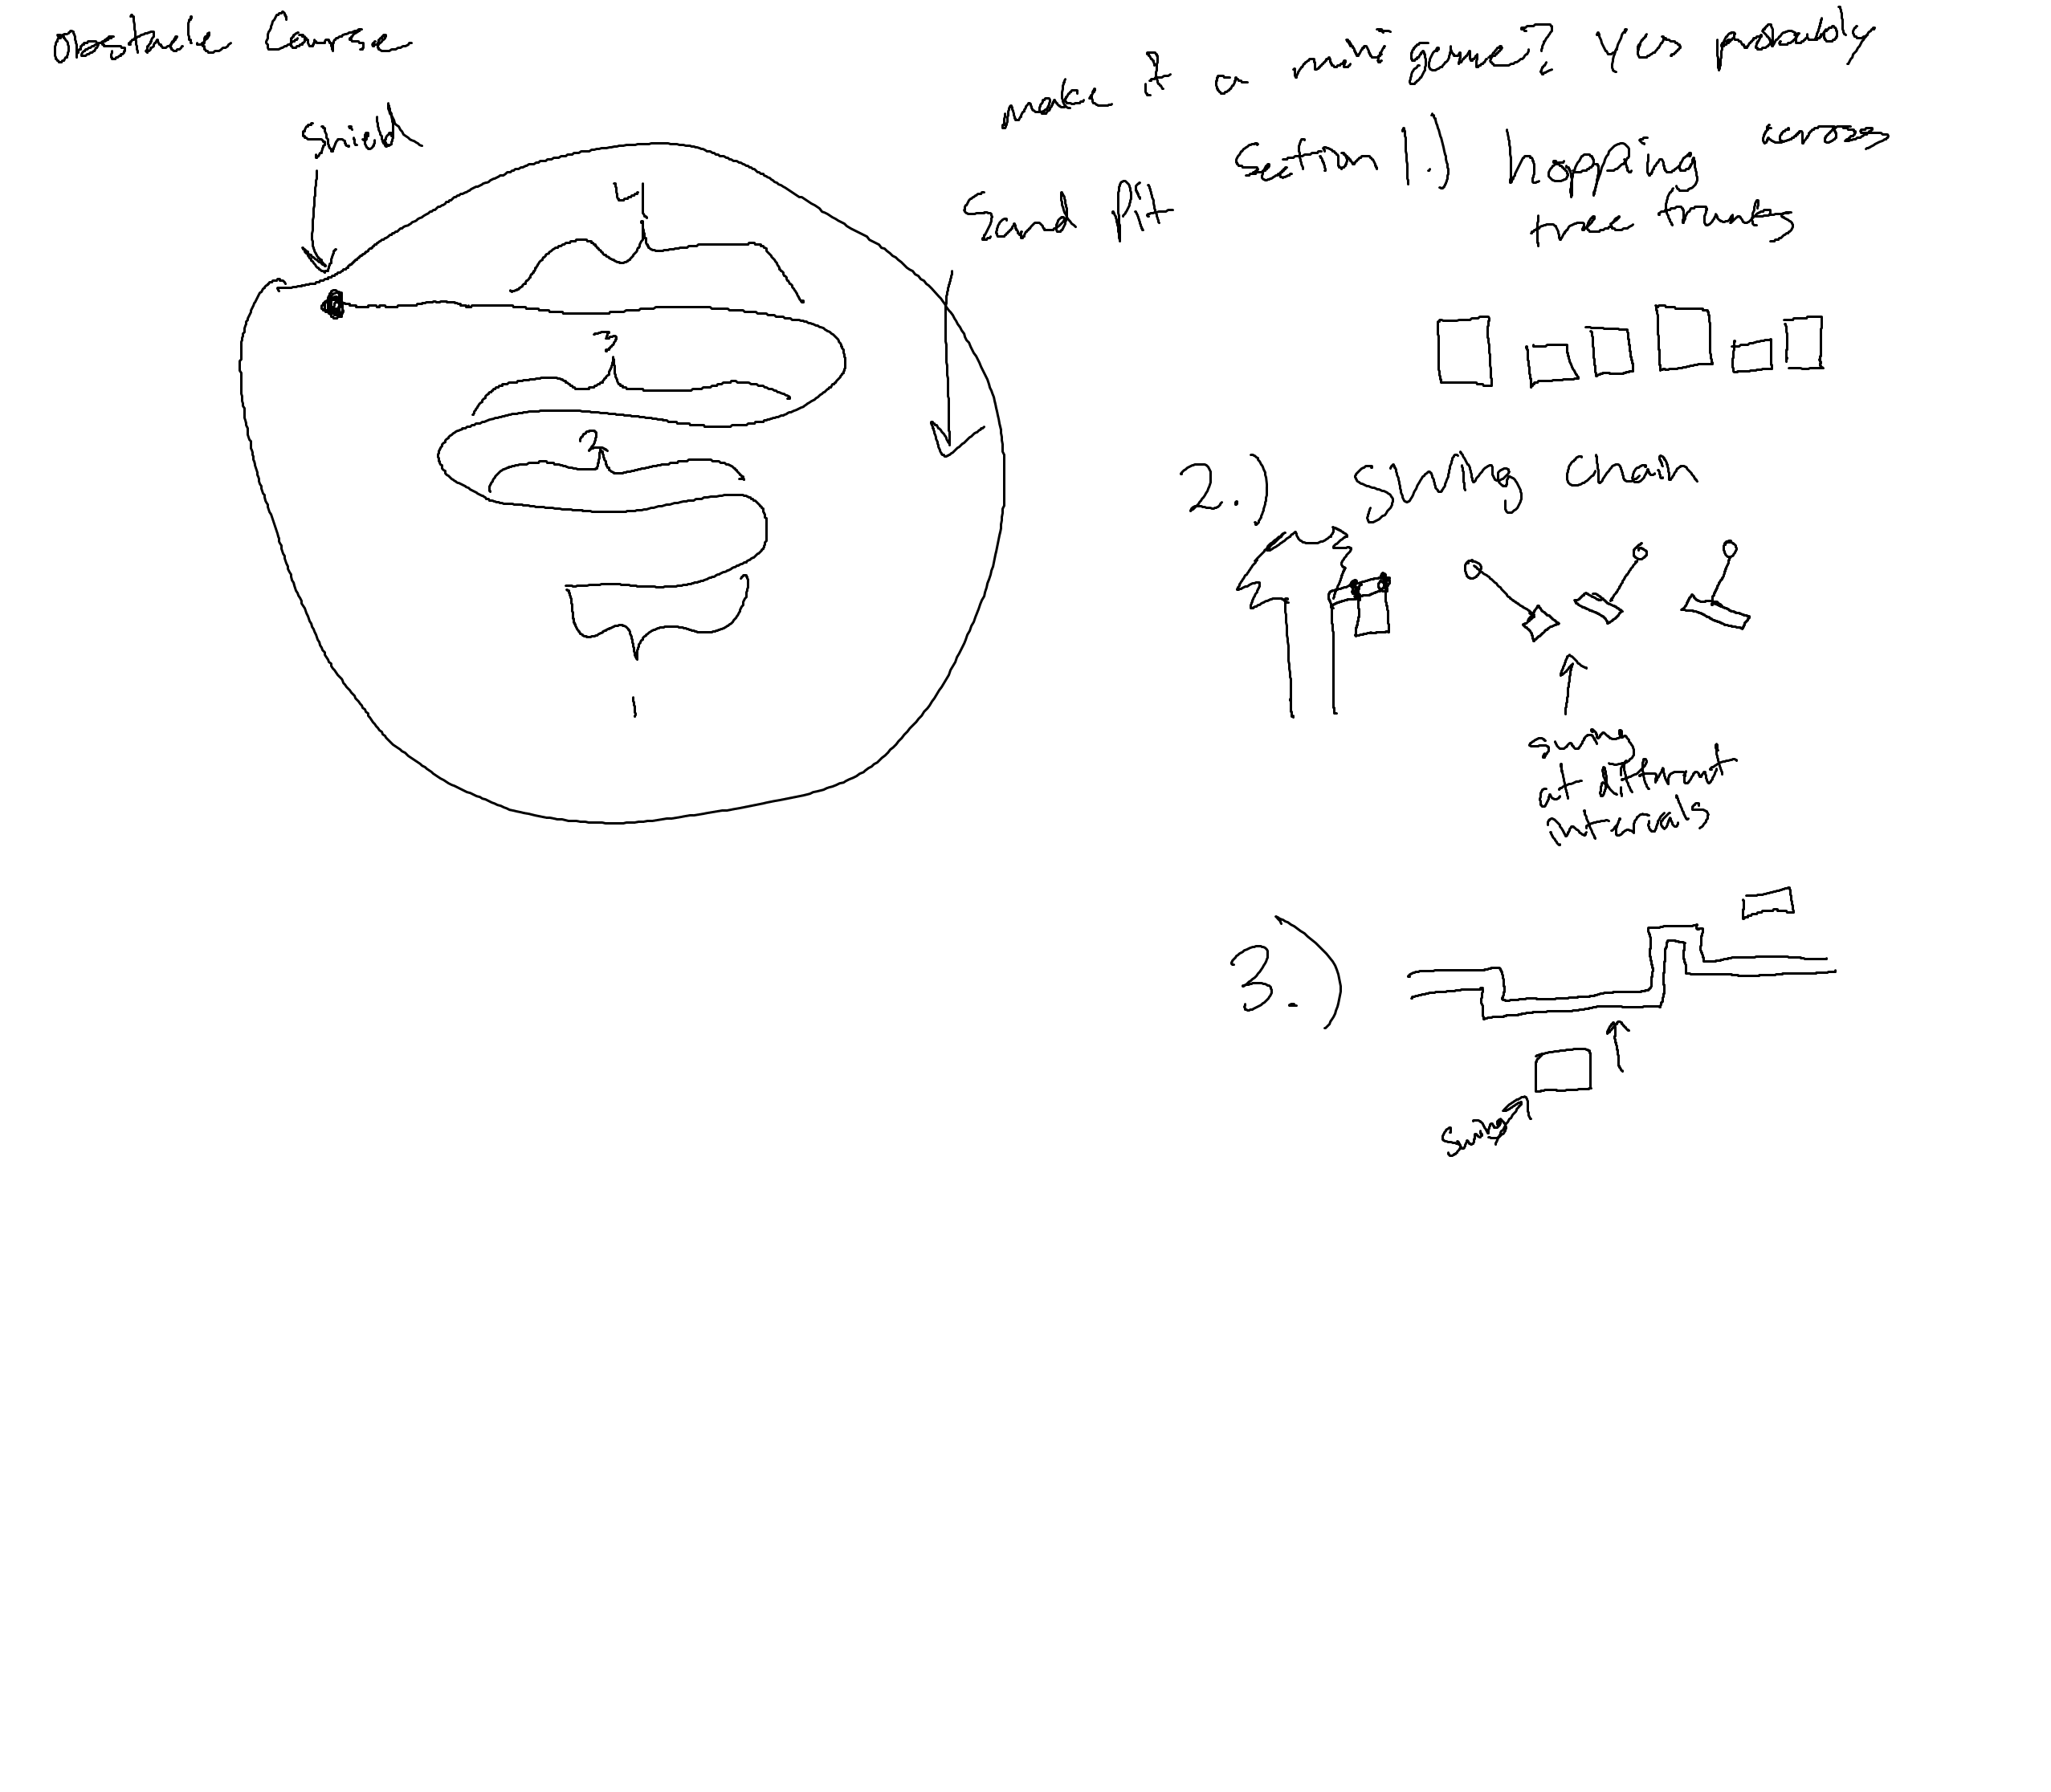 Obstacle Course
make it a mini game? Yes probably
shield
Sand Pit
Section 1.) hopping across
tree trunks
4
3
2
1
2.) Swing chain
swing
at different
intervals
3.)
swing